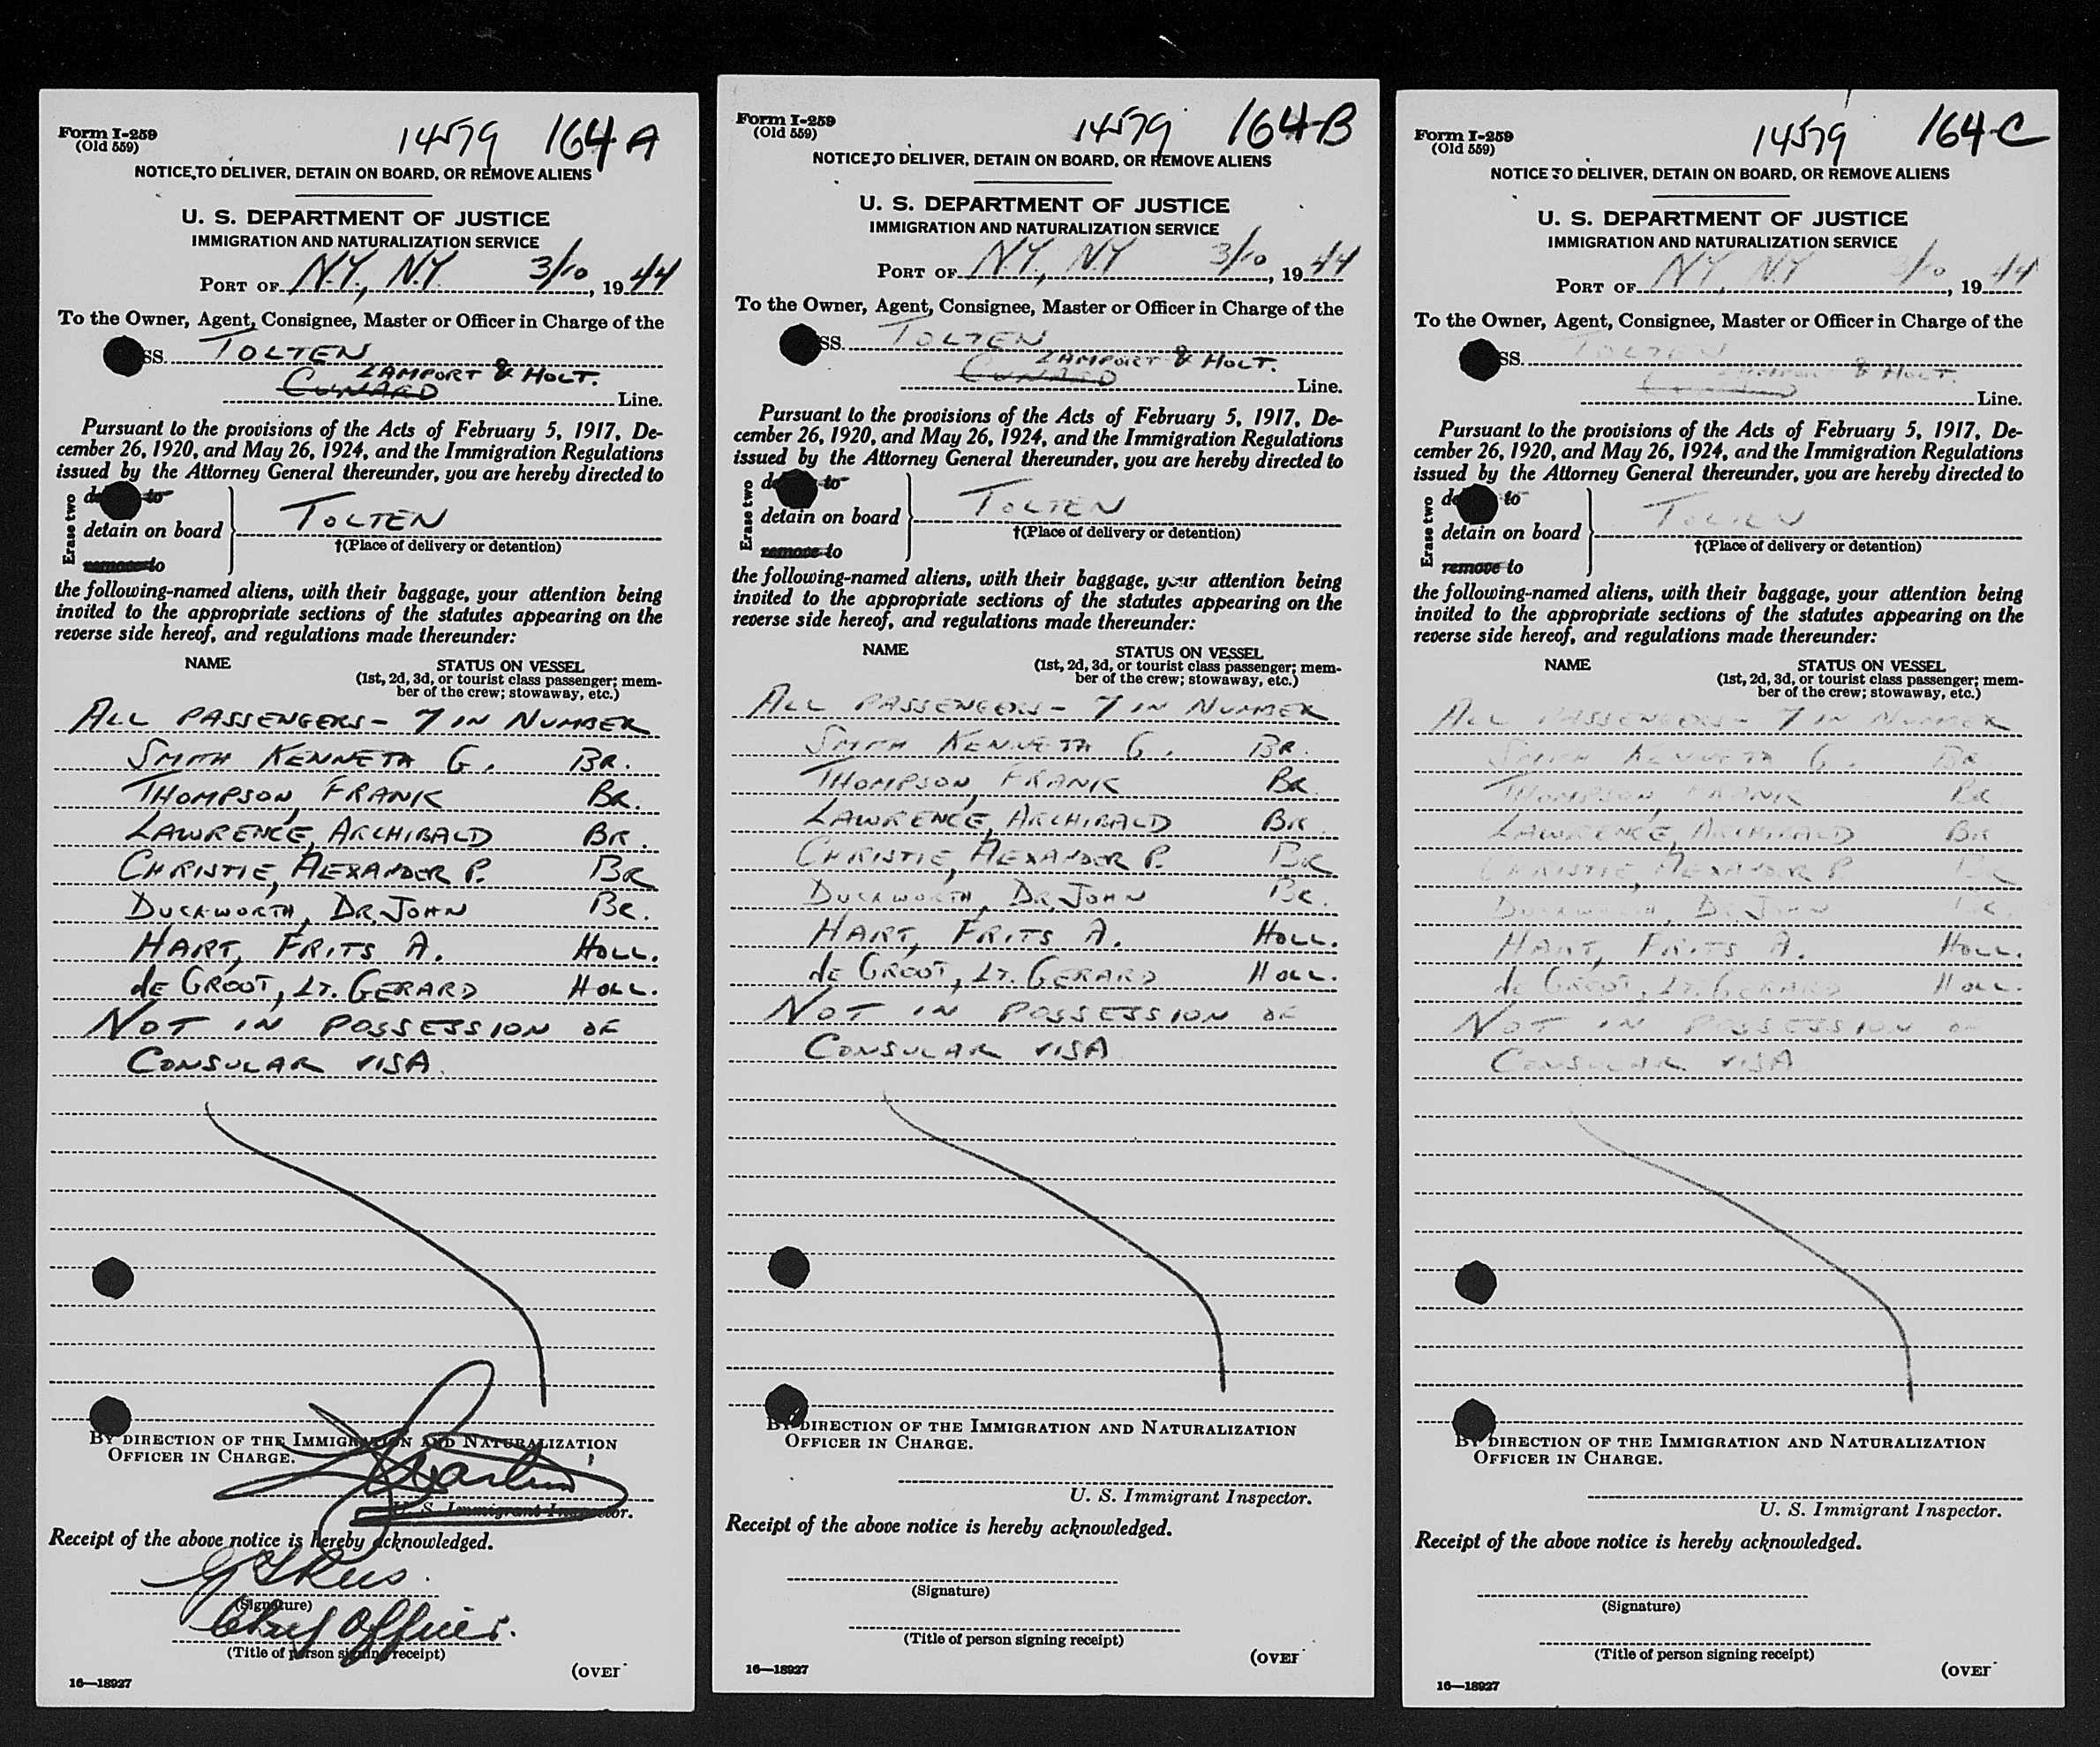 Form I-259
(Old 559)
14579 164 A
NOTICE TO DELIVER, DETAIN ON BOARD, OR REMOVE ALIENS
U. S. DEPARTMENT OF JUSTICE
IMMIGRATION AND NATURALIZATION SERVICE
PORT OF N.Y., N.Y. 3/10, 1944
To the Owner, Agent, Consignee, Master or Officer in Charge of the
SS. TOLTEN
LAMPORT & HOLT.
CUNARD Line.
Pursuant to the provisions of the Acts of February 5, 1917, De-
cember 26, 1920, and May 26, 1924, and the Immigration Regulations
issued by the Attorney General thereunder, you are hereby directed to
Erase two
to
detain on board TOLTEN
†(Place of delivery or detention)
remove to
the following-named aliens, with their baggage, your attention being
invited to the appropriate sections of the statutes appearing on the
reverse side hereof, and regulations made thereunder:
NAME STATUS ON VESSEL
(1st, 2d, 3d, or tourist class passenger; mem-
ber of the crew; stowaway, etc.)
ALL PASSENGERS - 7 IN NUMBER
SMITH KENNETH G. BR.
THOMPSON, FRANK BR.
LAWRENCE, ARCHIBALD BR.
CHRISTIE, ALEXANDER P. BR
DUCKWORTH, DR. JOHN BR.
HART, FRITS A. HOLL.
de GROOT, LT. GERARD HOLL.
NOT IN POSSESSION OF
CONSULAR VISA.
BY DIRECTION OF THE IMMIGRATION AND NATURALIZATION
OFFICER IN CHARGE.
U. S. Immigrant Inspector.
Receipt of the above notice is hereby acknowledged.
(Signature)
Chief Officer.
(Title of person signing receipt)
16—18927 (OVER
Form I-259
(Old 559)
14579 164-B
NOTICE TO DELIVER, DETAIN ON BOARD, OR REMOVE ALIENS
U. S. DEPARTMENT OF JUSTICE
IMMIGRATION AND NATURALIZATION SERVICE
PORT OF N.Y., N.Y 3/10, 1944
To the Owner, Agent, Consignee, Master or Officer in Charge of the
SS. TOLTEN
LAMPORT & HOLT.
CUNARD Line.
Pursuant to the provisions of the Acts of February 5, 1917, De-
cember 26, 1920, and May 26, 1924, and the Immigration Regulations
issued by the Attorney General thereunder, you are hereby directed to
Erase two
to
detain on board TOLTEN
†(Place of delivery or detention)
remove to
the following-named aliens, with their baggage, your attention being
invited to the appropriate sections of the statutes appearing on the
reverse side hereof, and regulations made thereunder:
NAME STATUS ON VESSEL
(1st, 2d, 3d, or tourist class passenger; mem-
ber of the crew; stowaway, etc.)
ALL PASSENGERS - 7 IN NUMBER
SMITH KENNETH G. BR.
THOMPSON, FRANK BR
LAWRENCE, ARCHIBALD BR
CHRISTIE, ALEXANDER P. BR
DUCKWORTH, DR. JOHN BR.
HART, FRITS A. HOLL.
de GROOT, LT. GERARD HOLL.
NOT IN POSSESSION OF
CONSULAR VISA
BY DIRECTION OF THE IMMIGRATION AND NATURALIZATION
OFFICER IN CHARGE.
U. S. Immigrant Inspector.
Receipt of the above notice is hereby acknowledged.
(Signature)
(Title of person signing receipt)
16—18927 (OVER
Form I-259
(Old 559)
14579 164-C
NOTICE TO DELIVER, DETAIN ON BOARD, OR REMOVE ALIENS
U. S. DEPARTMENT OF JUSTICE
IMMIGRATION AND NATURALIZATION SERVICE
PORT OF N.Y., N.Y 3/10, 1944
To the Owner, Agent, Consignee, Master or Officer in Charge of the
SS. TOLTEN
LAMPORT & HOLT.
CUNARD Line.
Pursuant to the provisions of the Acts of February 5, 1917, De-
cember 26, 1920, and May 26, 1924, and the Immigration Regulations
issued by the Attorney General thereunder, you are hereby directed to
Erase two
to
detain on board TOLTEN
†(Place of delivery or detention)
remove to
the following-named aliens, with their baggage, your attention being
invited to the appropriate sections of the statutes appearing on the
reverse side hereof, and regulations made thereunder:
NAME STATUS ON VESSEL
(1st, 2d, 3d, or tourist class passenger; mem-
ber of the crew; stowaway, etc.)
ALL PASSENGERS - 7 IN NUMBER
SMITH KENNETH G. BR
THOMPSON, FRANK BR
LAWRENCE, ARCHIBALD BR
CHRISTIE, ALEXANDER P. BR
DUCKWORTH, DR. JOHN BR.
HART, FRITS A. HOLL.
de GROOT, LT. GERARD HOLL.
NOT IN POSSESSION OF
CONSULAR VISA
BY DIRECTION OF THE IMMIGRATION AND NATURALIZATION
OFFICER IN CHARGE.
U. S. Immigrant Inspector.
Receipt of the above notice is hereby acknowledged.
(Signature)
(Title of person signing receipt)
16—18927 (OVER